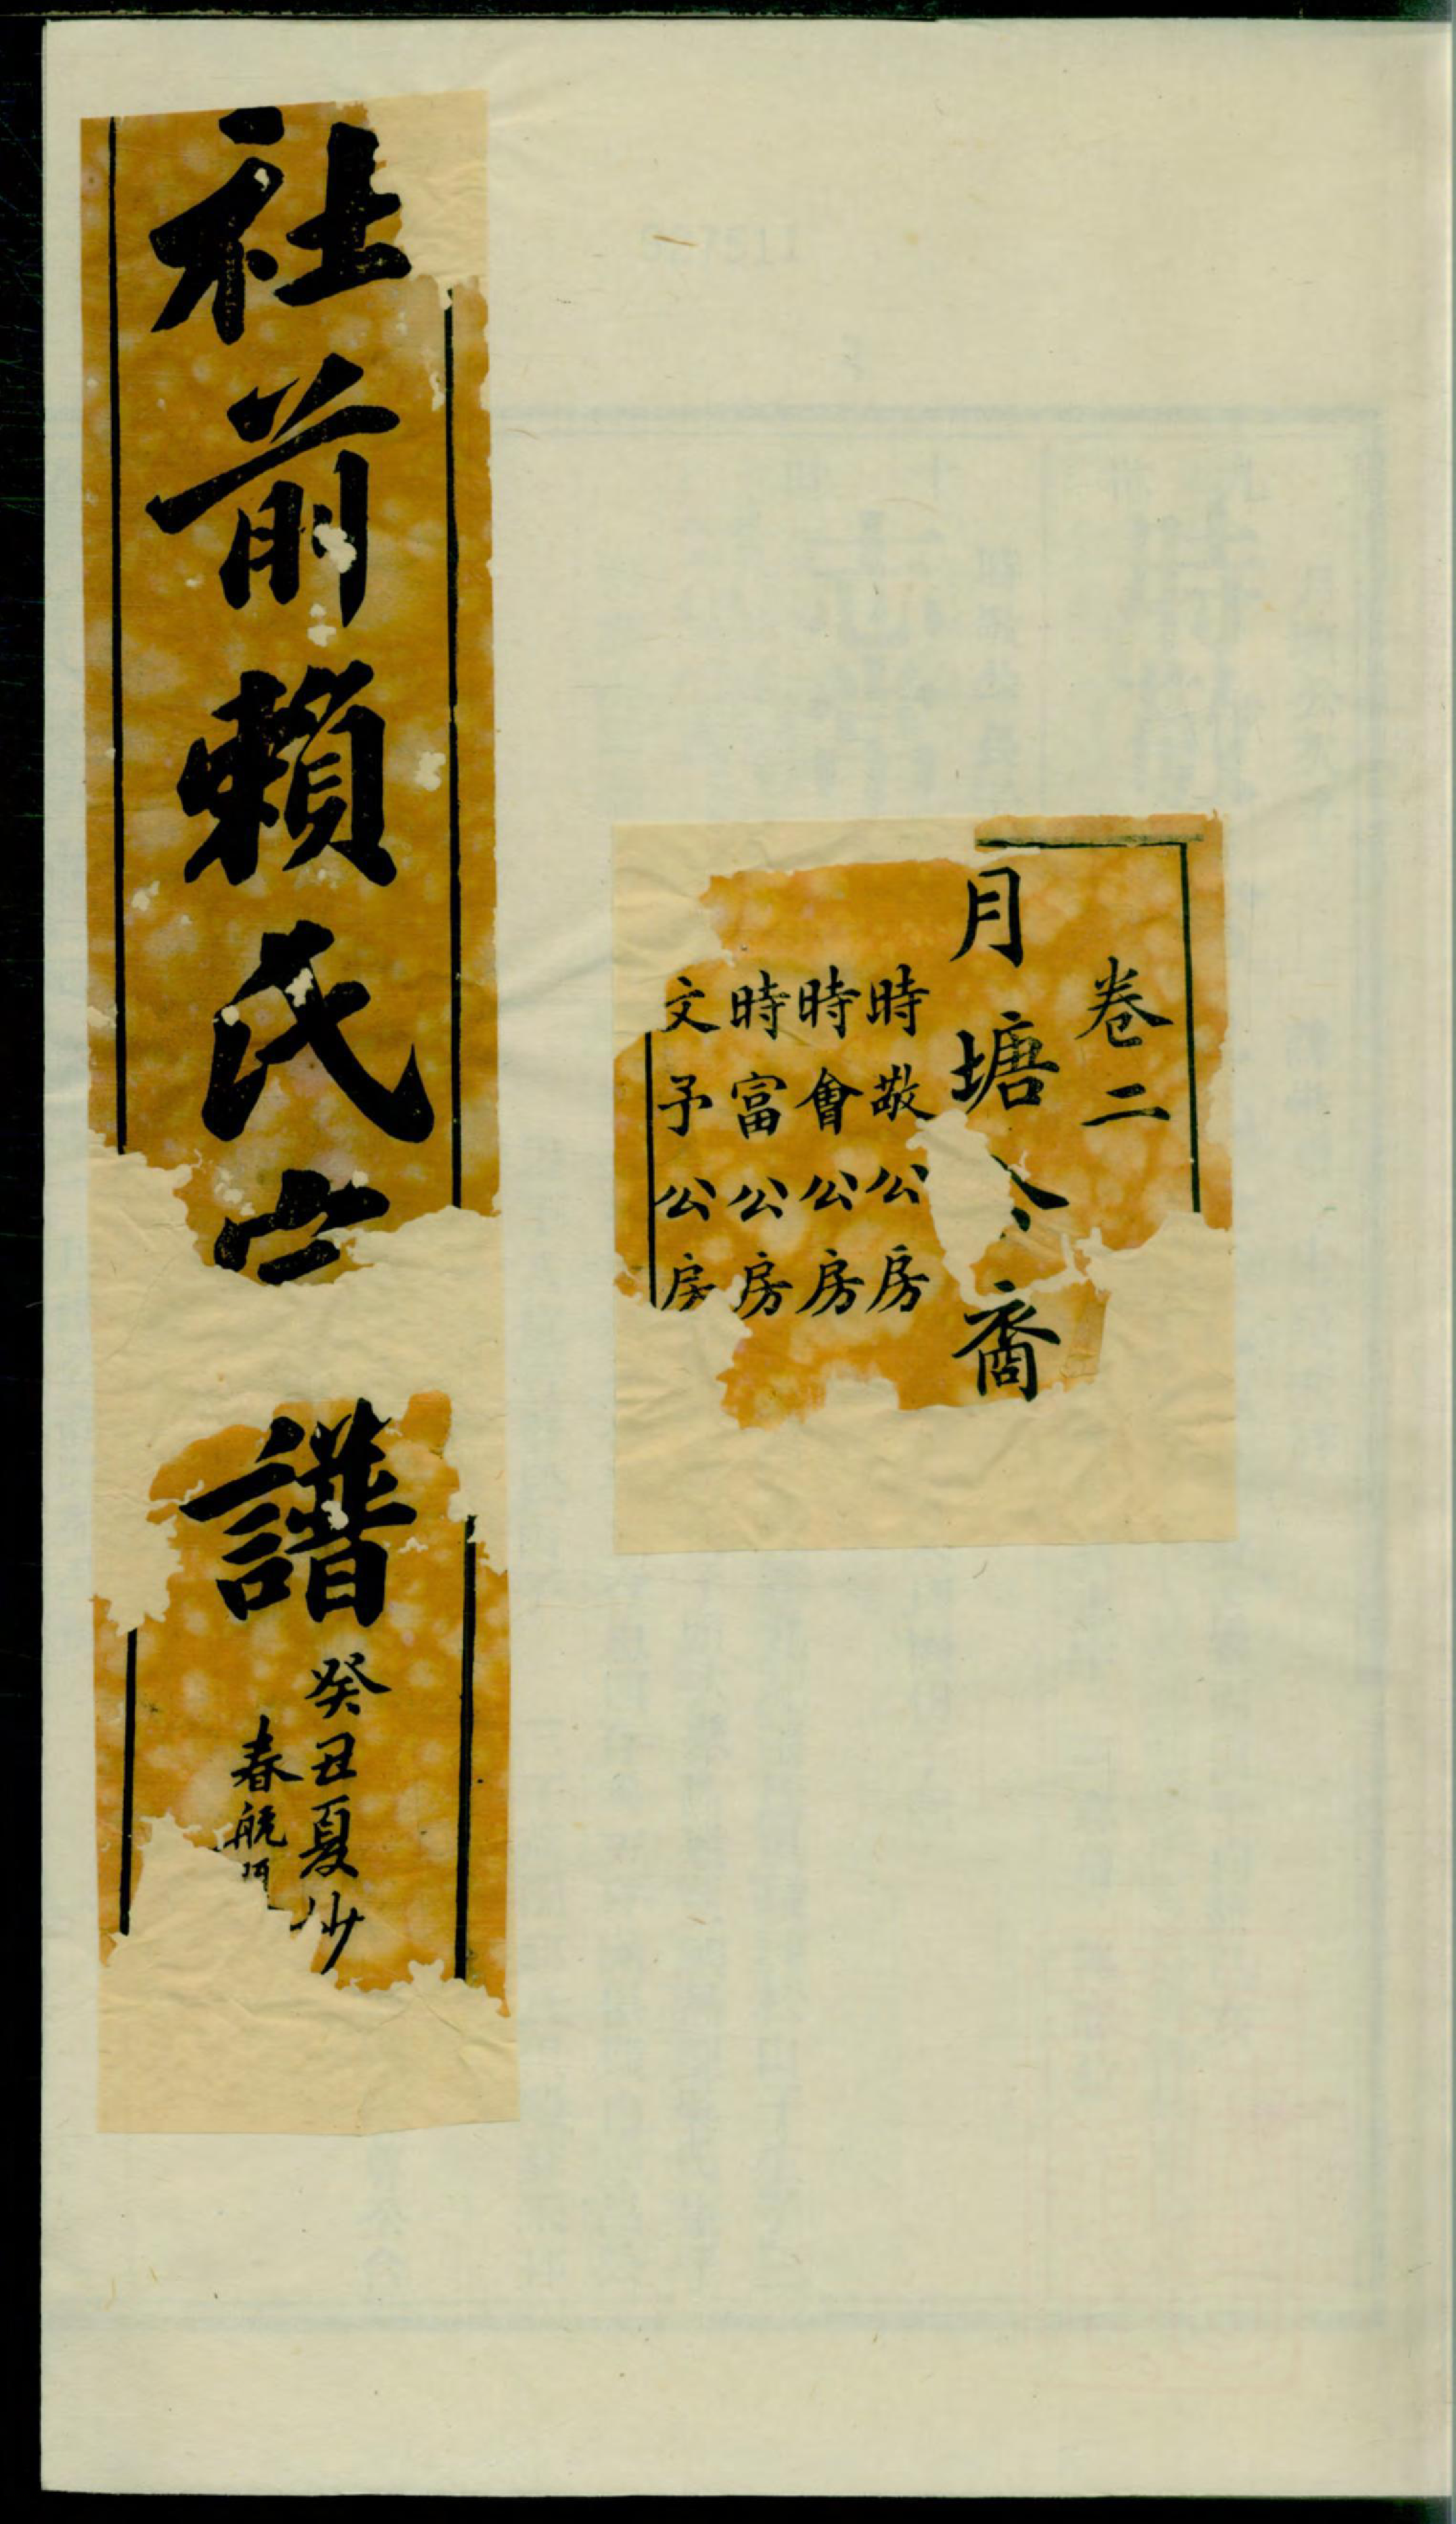 卷二
月塘公裔
時敬公房
時會公房
時富公房
文予公房
社前賴氏宗譜
癸丑夏杪
春航